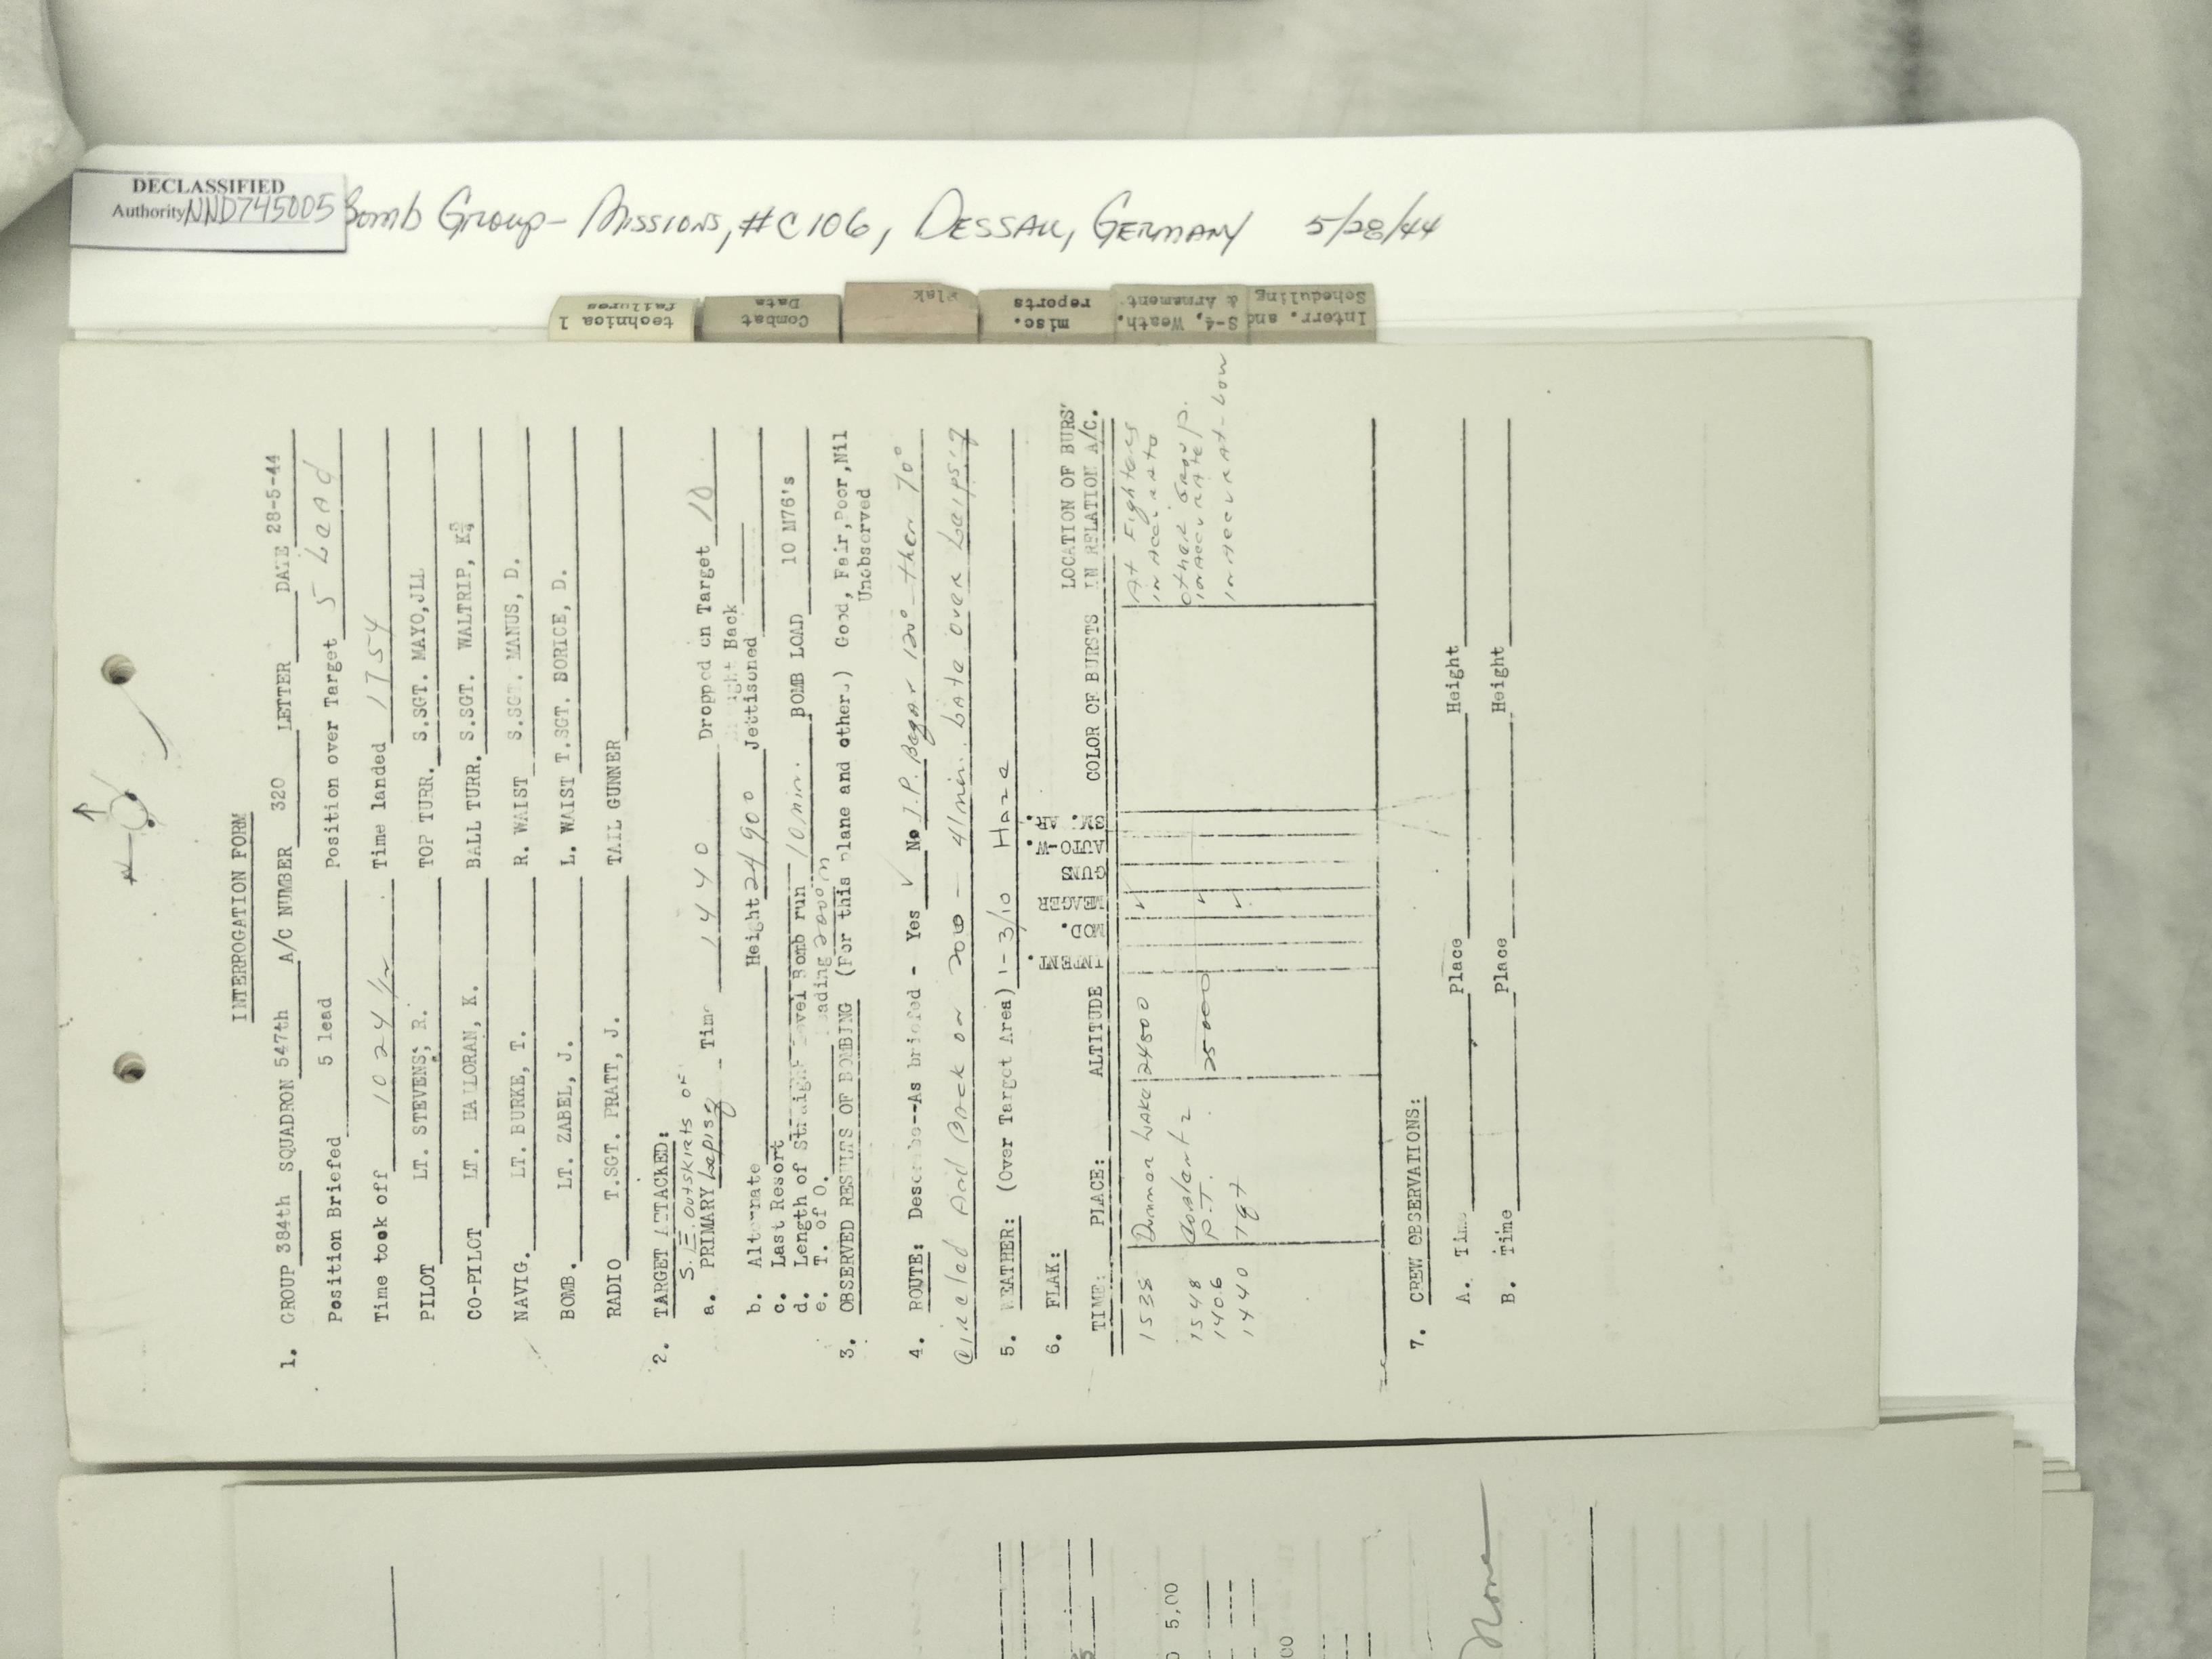 DECLASSIFIED
Authority NND745005
Bomb Group - Missions, #C106, Dessau, Germany 5/28/44
technical failures
Combat Data
Flak
misc. reports
S-4, Weath. & Armament
Interr. and Scheduling
INTERROGATION FORM
1. GROUP 384th SQUADRON 547th A/C NUMBER 320 LETTER DATE 28-5-44
Position Briefed 5 lead Position over Target 5 Lead
Time took off 1024 1/2 Time landed 1754
PILOT LT. STEVENS, R. TOP TURR. S.SGT. MAYO, JLL
CO-PILOT LT. HALLORAN, K. BALL TURR. S.SGT. WALTRIP, K
NAVIG. LT. BURKE, T. R. WAIST S.SGT. MANUS, D.
BOMB. LT. ZABEL, J. L. WAIST T.SGT. BORICE, D.
RADIO T.SGT. PRATT, J. TAIL GUNNER
2. TARGET ATTACKED:
S.E. outskirts of
a. PRIMARY Lepisg Time 1440 Dropped on Target 10
ght Back
b. Alternate Height 24900 Jettisoned
c. Last Resort
d. Length of Straight Level Bomb run 10 min. BOMB LOAD 10 M76's
e. T. of O. ading 200°m
3. OBSERVED RESULTS OF BOMBING (For this plane and others) Good, Fair, Poor, Nil
Unobserved
4. ROUTE: Describe--As briefed - Yes ✓ No I.P. Began 120° - then 70°
Circled And Back on 200 - 41 min. Late over Leipsig
5. WEATHER: (Over Target Area) 1 - 3/10 Haze
6. FLAK:
LOCATION OF BURS'
TIME: PLACE: ALTITUDE INTENT. MOD. MEAGER GUNS AUTO-W. SM. AR. COLOR OF BURSTS IN RELATION A/C.
1538 Dummer Lake 24500 ✓ At Fighters
inaccurate
1548 ✓ other group.
1406 P.T. 25000 inaccurate
1440 Tgt ✓ inaccurat - Low
7. CREW OBSERVATIONS:
A. Time Place Height
B. Time Place Height
5,00
00
None